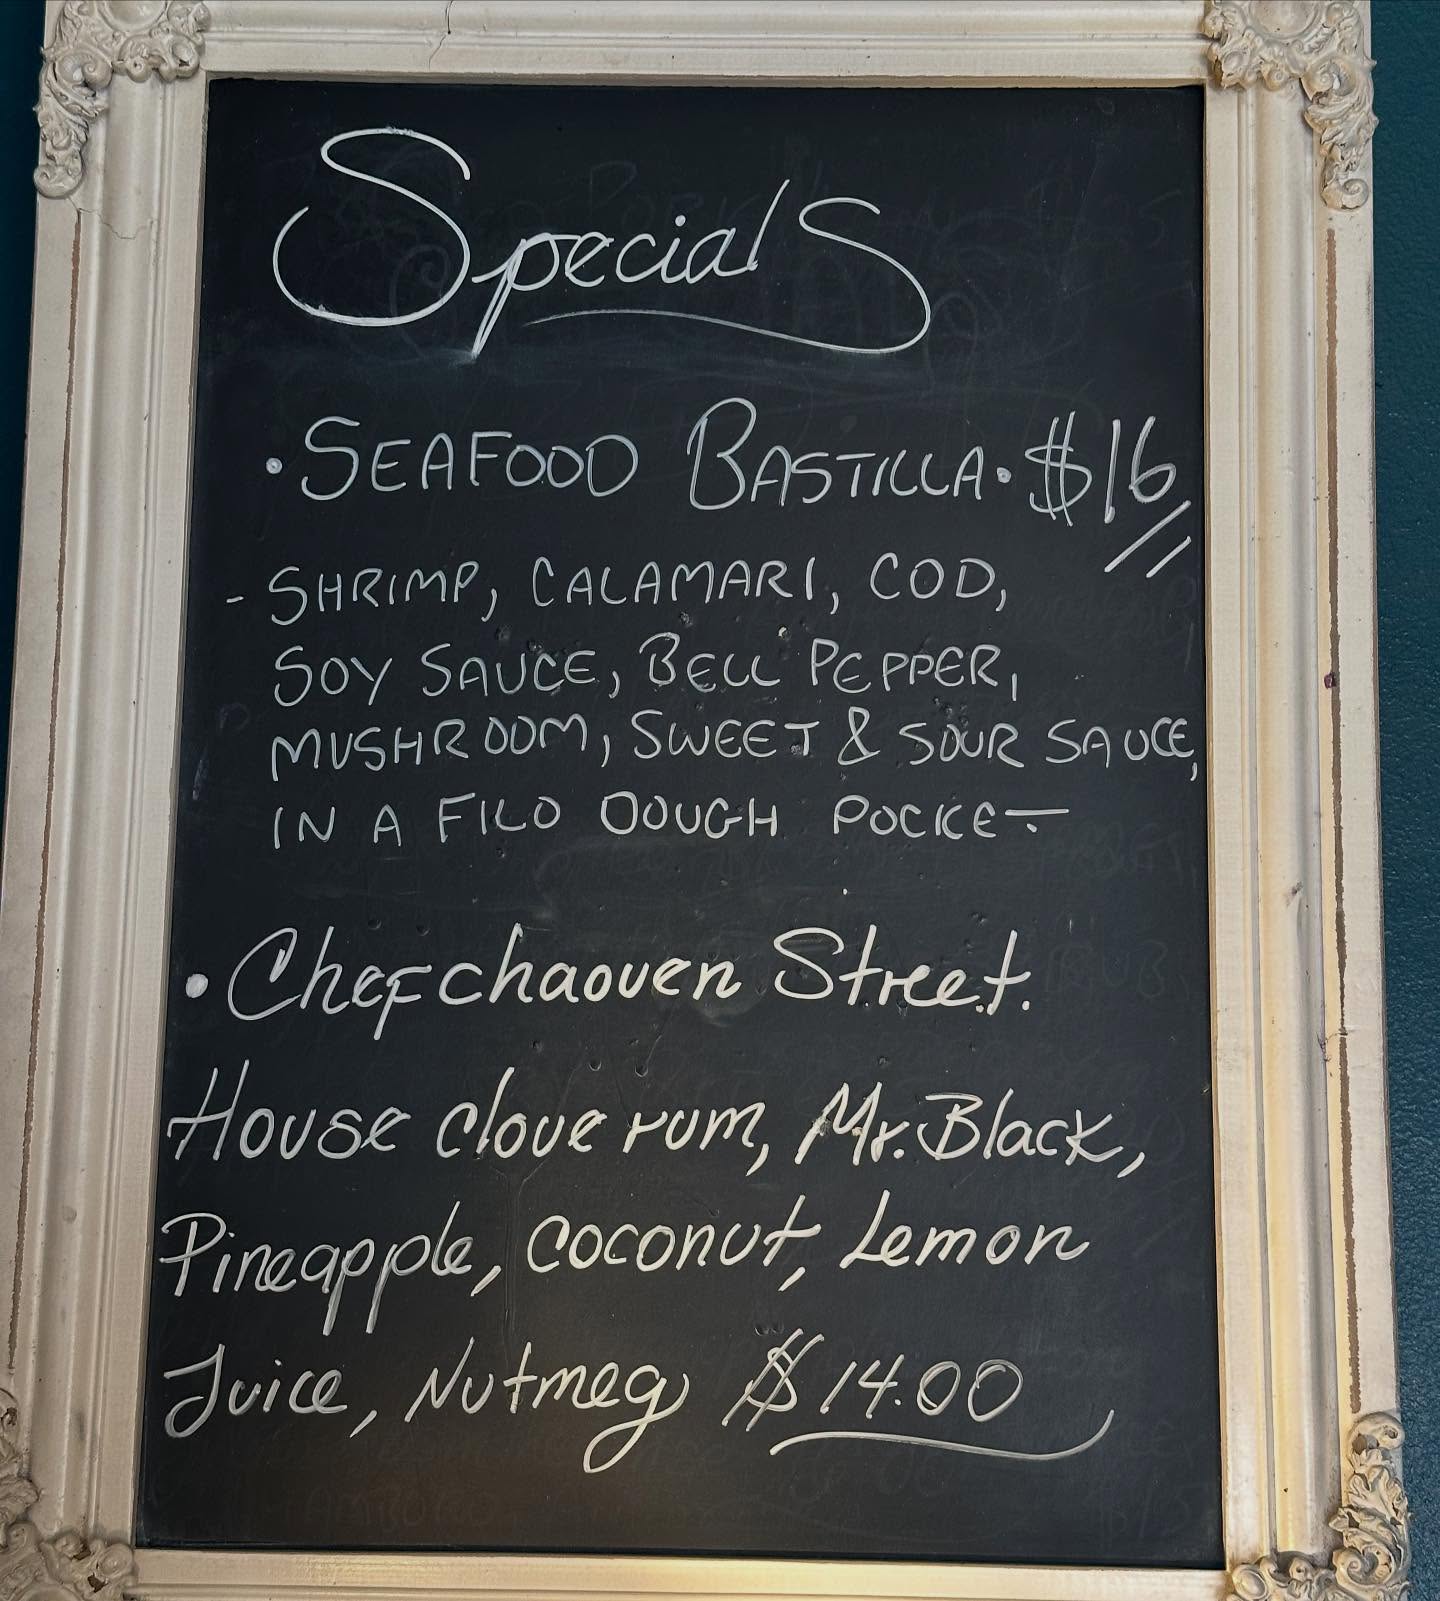 Specials
• SEAFOOD BASTILLA • $16
- SHRIMP, CALAMARI, COD,
SOY SAUCE, BELL PEPPER,
MUSHROOM, SWEET & SOUR SAUCE,
IN A FILO DOUGH POCKET.
• Chefchaouen Street.
House clove rum, Mr. Black,
Pineapple, coconut, Lemon
Juice, Nutmeg $14.00